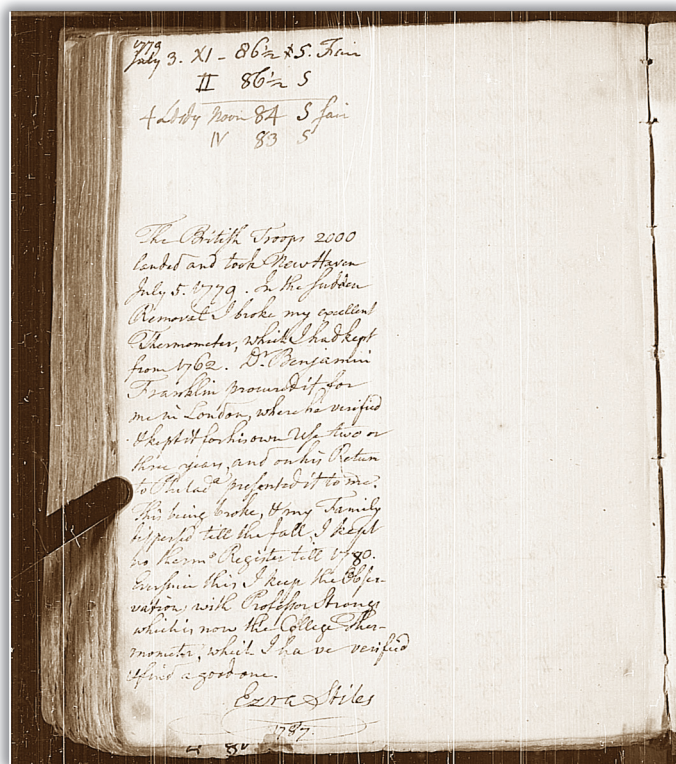 1779
July 3. XI - 86½ S. Fair
II 86½ S
4 Noon 84 S fair
IV 83 S
The British Troops 2000
landed and took New Haven
July 5. 1779. In the sudden
Removal I broke my excellent
Thermometer, which I had kept
from 1762. Dr. Benjamin
Franklin procured it for
me in London, where he verified
& kept it for his own Use two or
three years, and on his Return
to Philada presented it to me.
This being broke, & my Family
dispersed till the fall, I kept
no Thermr Register till 1780.
Ever since this I keep the Obser-
vations with Professor Strongs
which is now the College Ther-
mometer, which I have verified
& find a good one.
Ezra Stiles
1787.